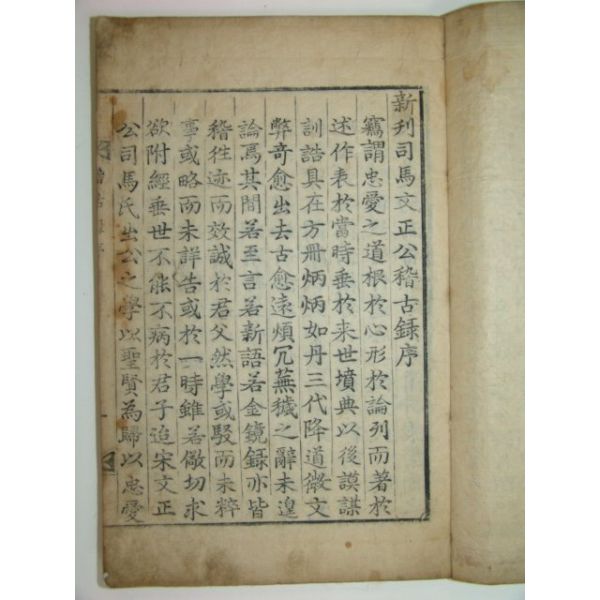 新刋司馬文正公稽古録序
竊謂忠愛之道根於心形於論列而著於
述作表於當時垂於来世墳典以後謨謀
訓誥具在方冊炳炳如丹三代降道微文
弊奇愈出去古愈遠煩冗蕪穢之辭未遑
論焉其間若至言若新語若金鏡録亦皆
稽徃迹而效誠於君父然學或駁而未粹
事或略而未詳告或於一時雖若儆切求
欲附經垂世不能不病於君子迨宋文正
公司馬氏出公之學以聖賢為歸以忠愛